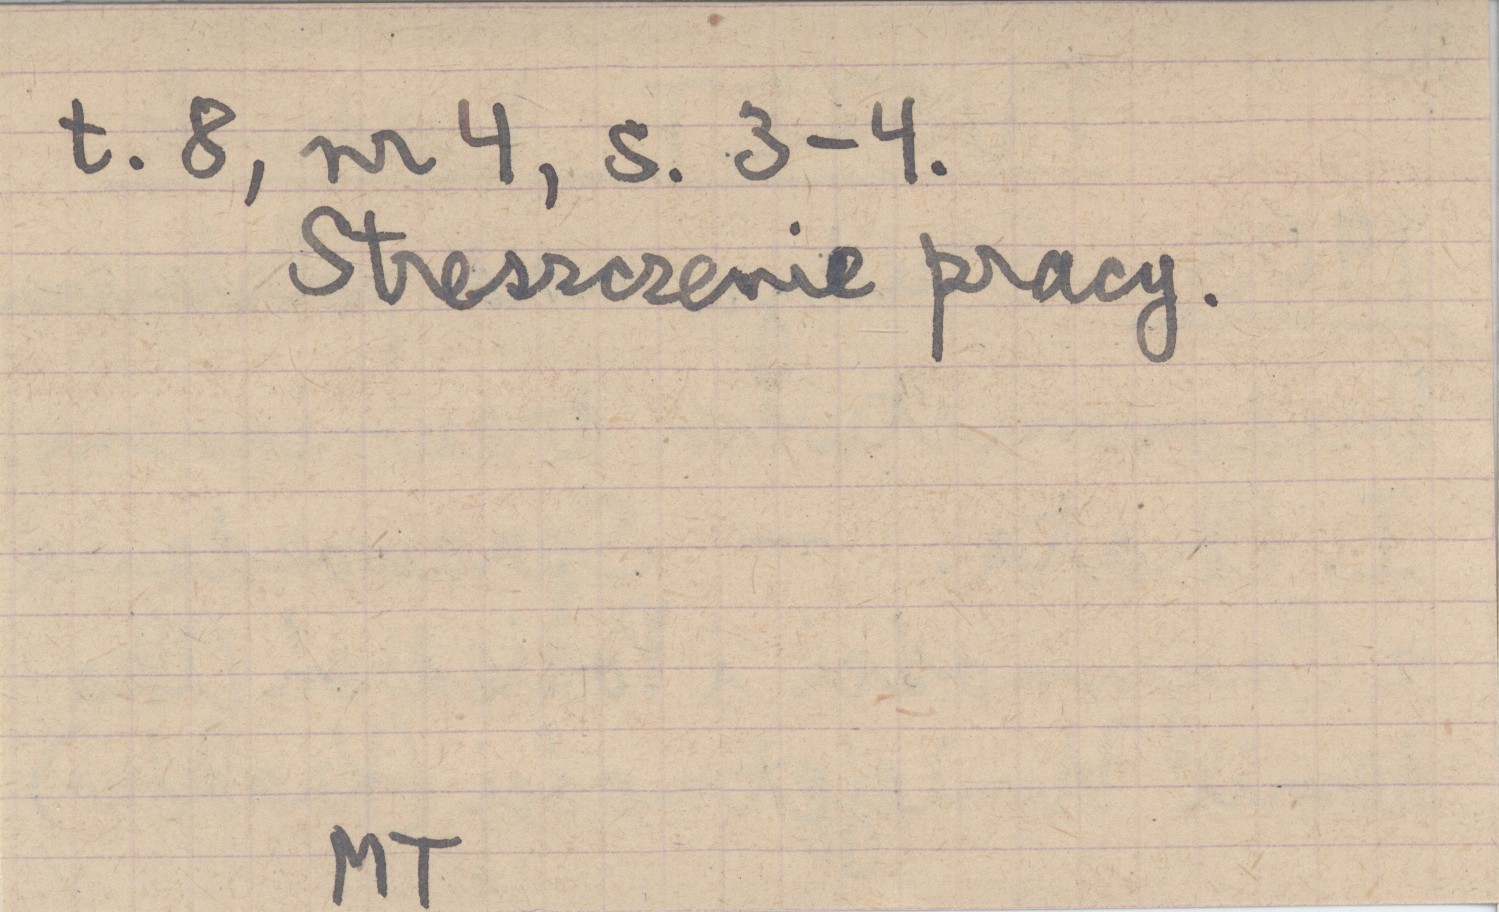 t. 8, nr 4, s. 3-4.
Streszczenie pracy.
MT